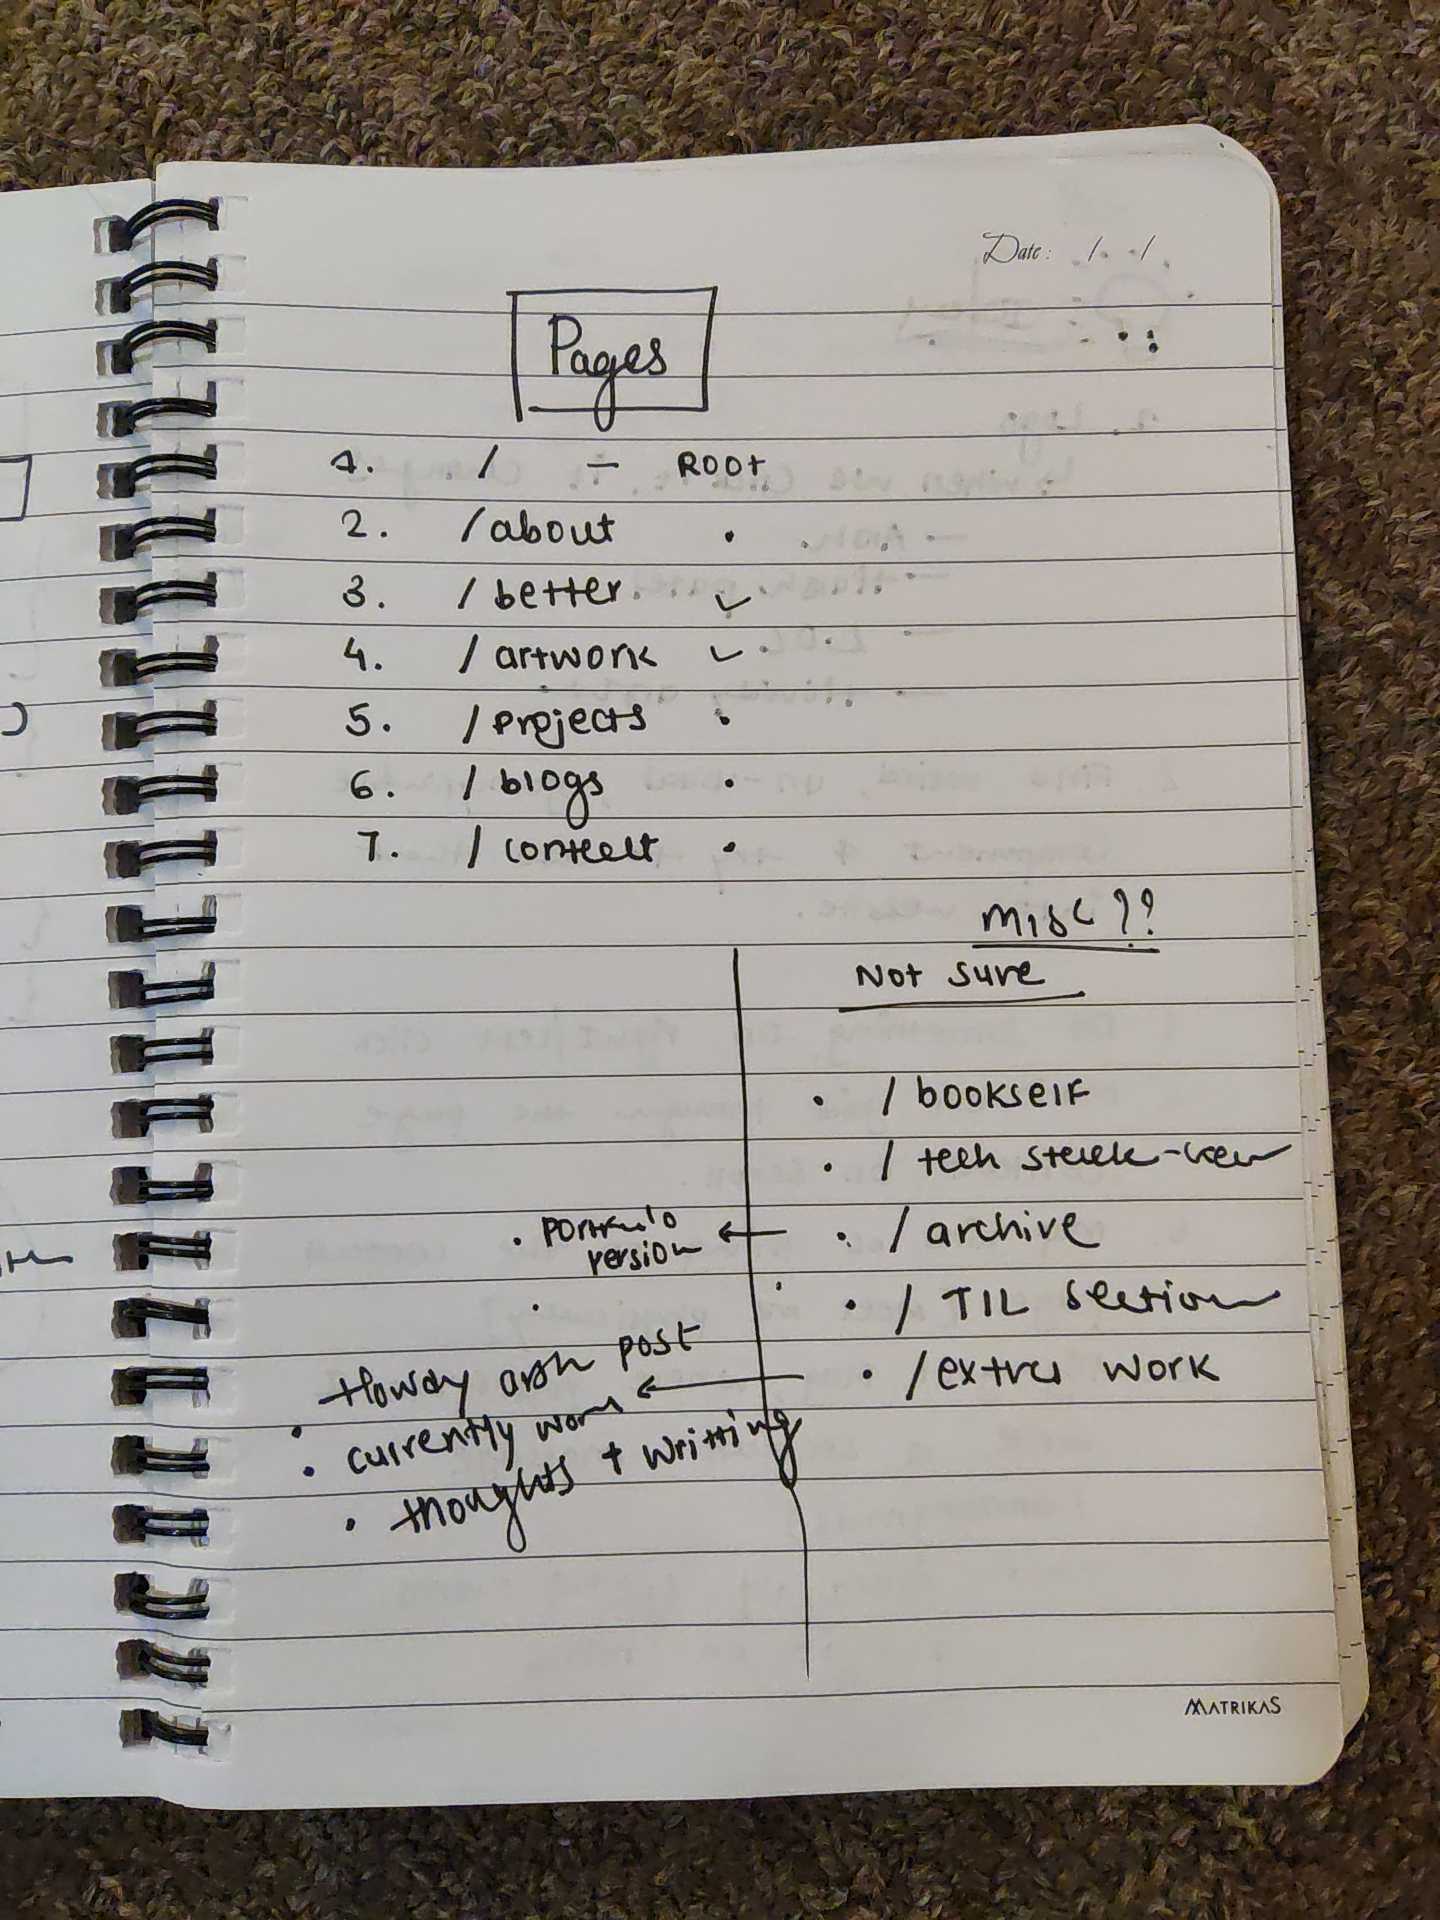 Date: / /
Pages
1. / - ROOT
2. /about .
3. /better ✓
4. /artwork ✓
5. /projects .
6. /blogs .
7. /contact .
Misc ??
Not sure
. /bookself
. /tech stack-
. /archive
. portfulo
version
. / TIL section
. /extra work
Howdy arsh post
. currently work
. thoughts + writting
MATRIKAS